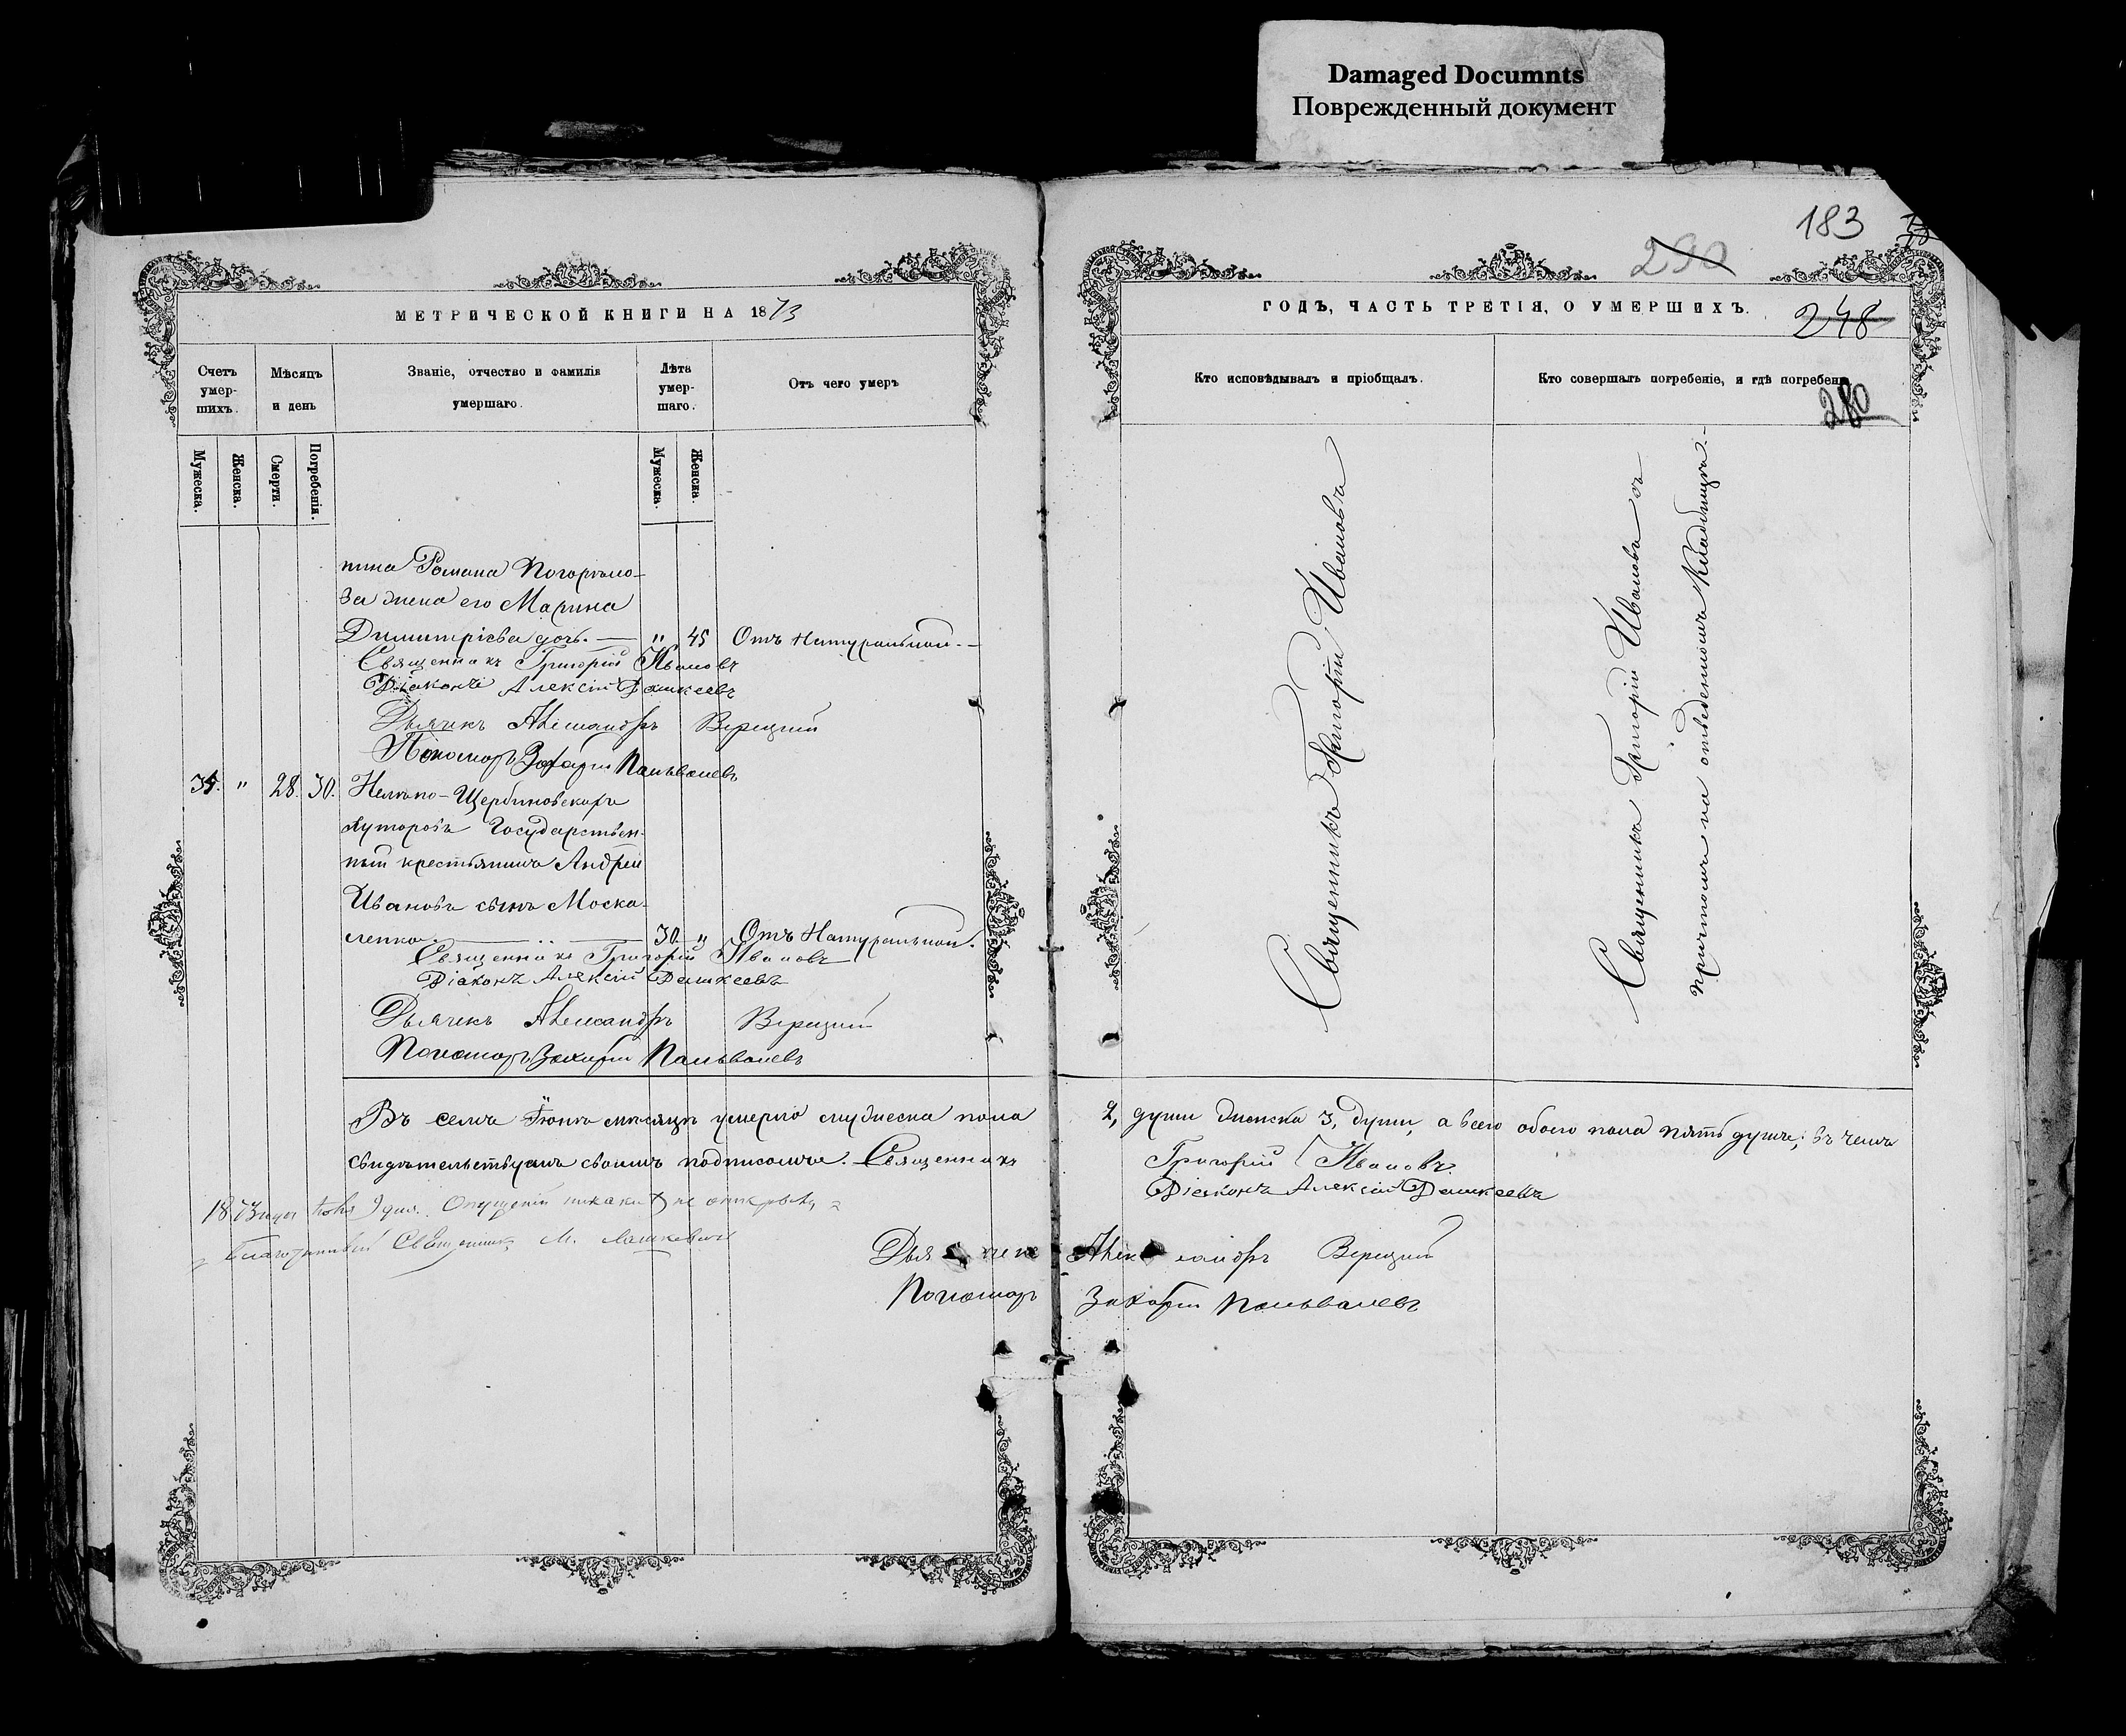 Damaged Documnts
Поврежденный документ
183
290
248
280
МЕТРИЧЕСКОЙ КНИГИ НА 1873
ГОДЪ, ЧАСТЬ ТРЕТІЯ, О УМЕРШИХЪ.
Счетъ умер-шихъ.
Мѣсяцъ и день
Званіе, отчество и фамилія умершаго.
Лѣта умер-шаго.
Отъ чего умеръ
Кто исповѣдывалъ и пріобщалъ.
Кто совершалъ погребеніе, и гдѣ погребены
Мужеска.
Женска.
Смерти.
Погребенія.
Мужеска.
Женска.
нина Романа Погорѣло-
за жена его Марина
Димитріева дочь. — " 45 Отъ Натуральной.-
Священникъ Григорій Ивановъ
Діаконъ Алексій Демкеевъ
Дьячекъ Александръ Верецкий
Пономарь Захарій
" 28. 30. Щербиновскаго
хуторовъ Государствен-
ный крестьянинъ Андрей
Ивановъ сынъ Моска-
ленко. — 30 " Отъ Натуральной.
Священникъ Григорій Ивановъ
Діаконъ Алексій Демкеевъ
Дьячекъ Александръ Верецкий
Пономарь Захарій
Священникъ Григорій Ивановъ
Священникъ Григорій Ивановъ съ
причтомъ на отведенномъ Кладбищѣ.-
Въ семъ Іюнѣ мѣсяцѣ умерло мужеска пола 2, души женска 3, души, а всего обоего пола пять душъ; въ чемъ
свидѣтельствуемъ своимъ подписомъ. Священникъ Григорій Ивановъ.
Діаконъ Алексій Демкеевъ
1873 года 9 дня. Опущеній никакихъ не открылъ
Благочинный Священникъ М.
Дьячекъ Александръ Верецкий
Пономарь Захарій